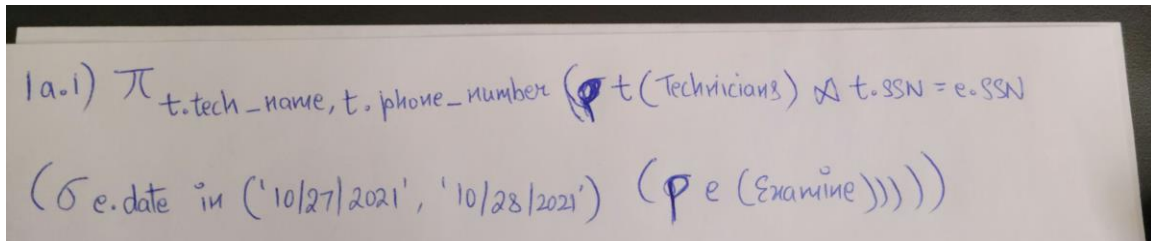 1a.i) π t.tech_name, t.phone_number (ρ t(Technicians) ⋈ t.SSN = e.SSN
(σ e.date in ('10/27/2021', '10/28/2021') (ρ e (Examine)))))